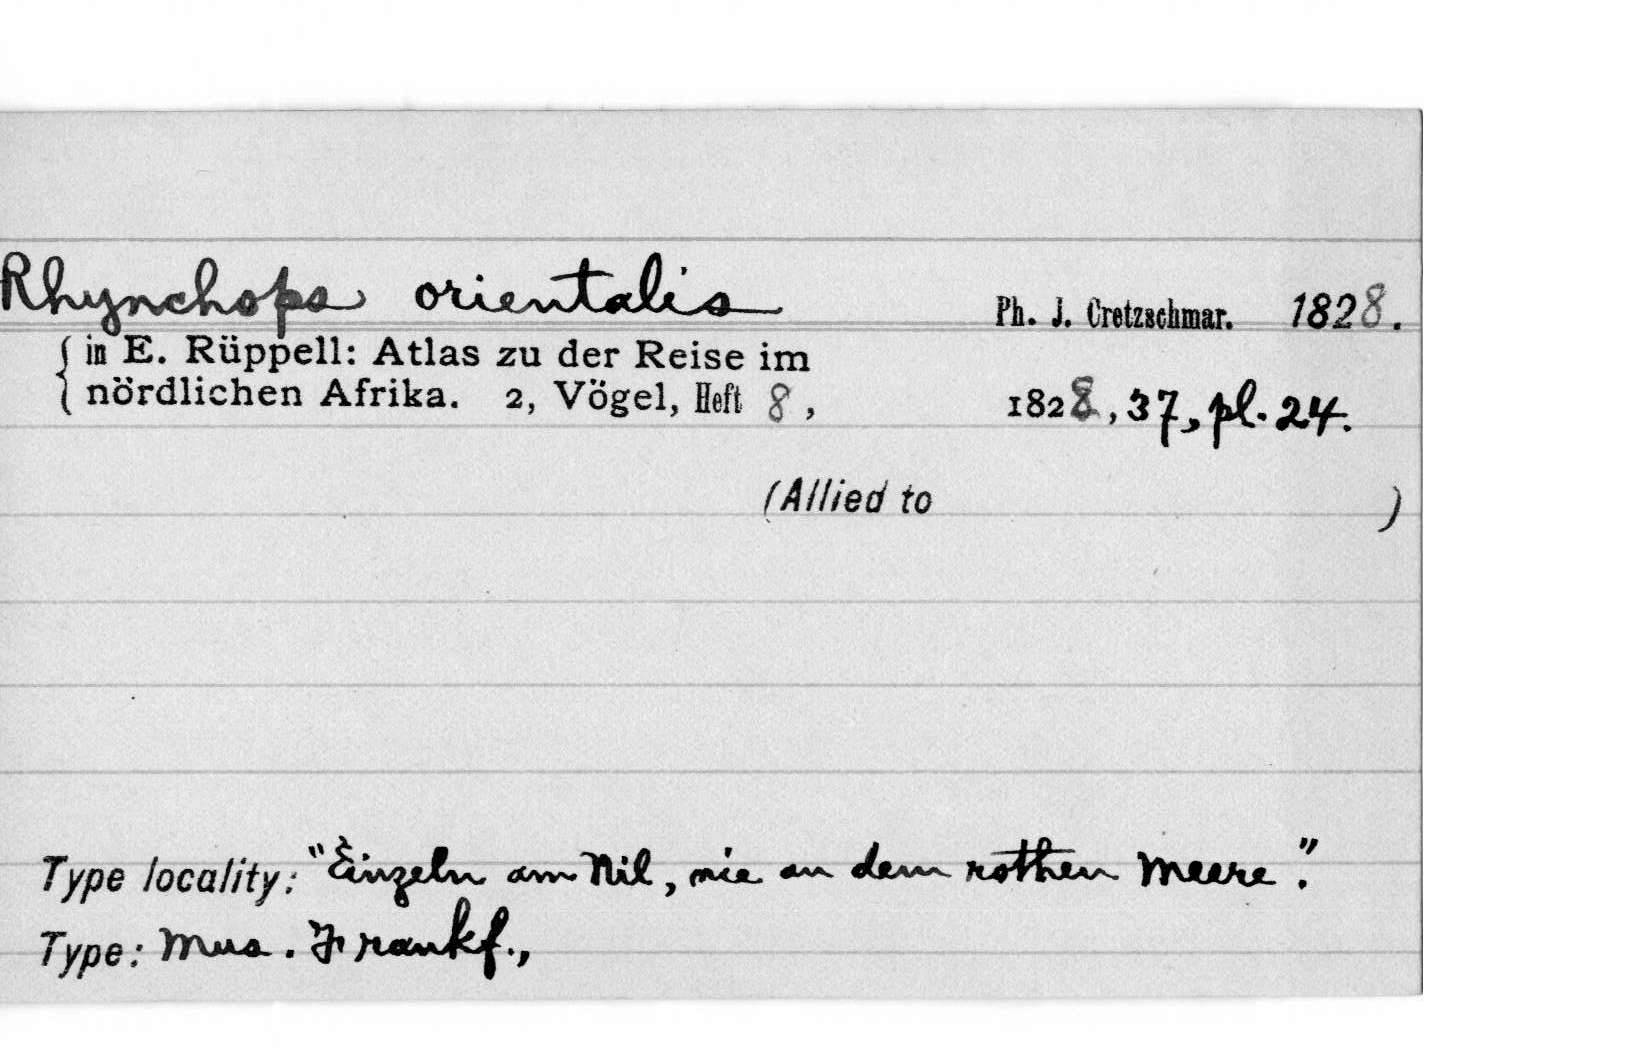 Rhynchops orientalis Ph. J. Cretzschmar. 1828.
in E. Rüppell: Atlas zu der Reise im
nördlichen Afrika. 2, Vögel, Heft 8, 1828, 37, pl. 24.
(Allied to )
Type locality: "Einzeln am Nil, nie an dem rothen Meere".
Type: Mus. Frankf.,